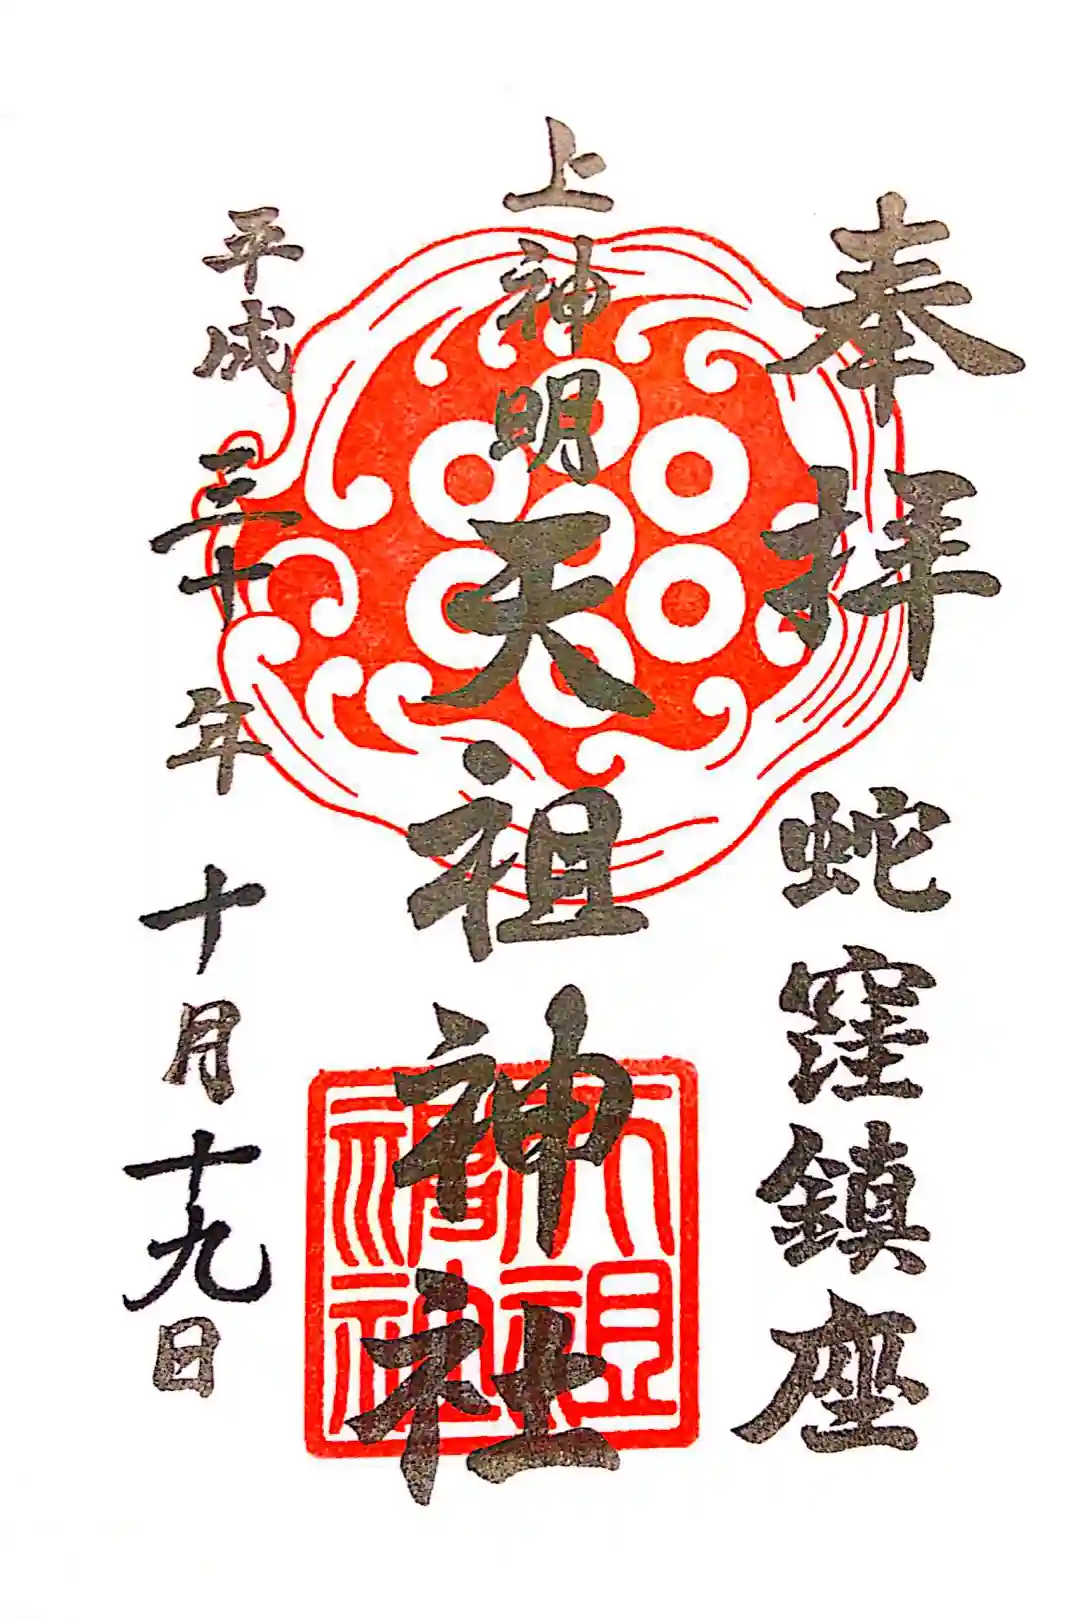 奉拝
蛇窪鎮座
上神明
天祖神社
平成三十年十月十九日
天祖
神社